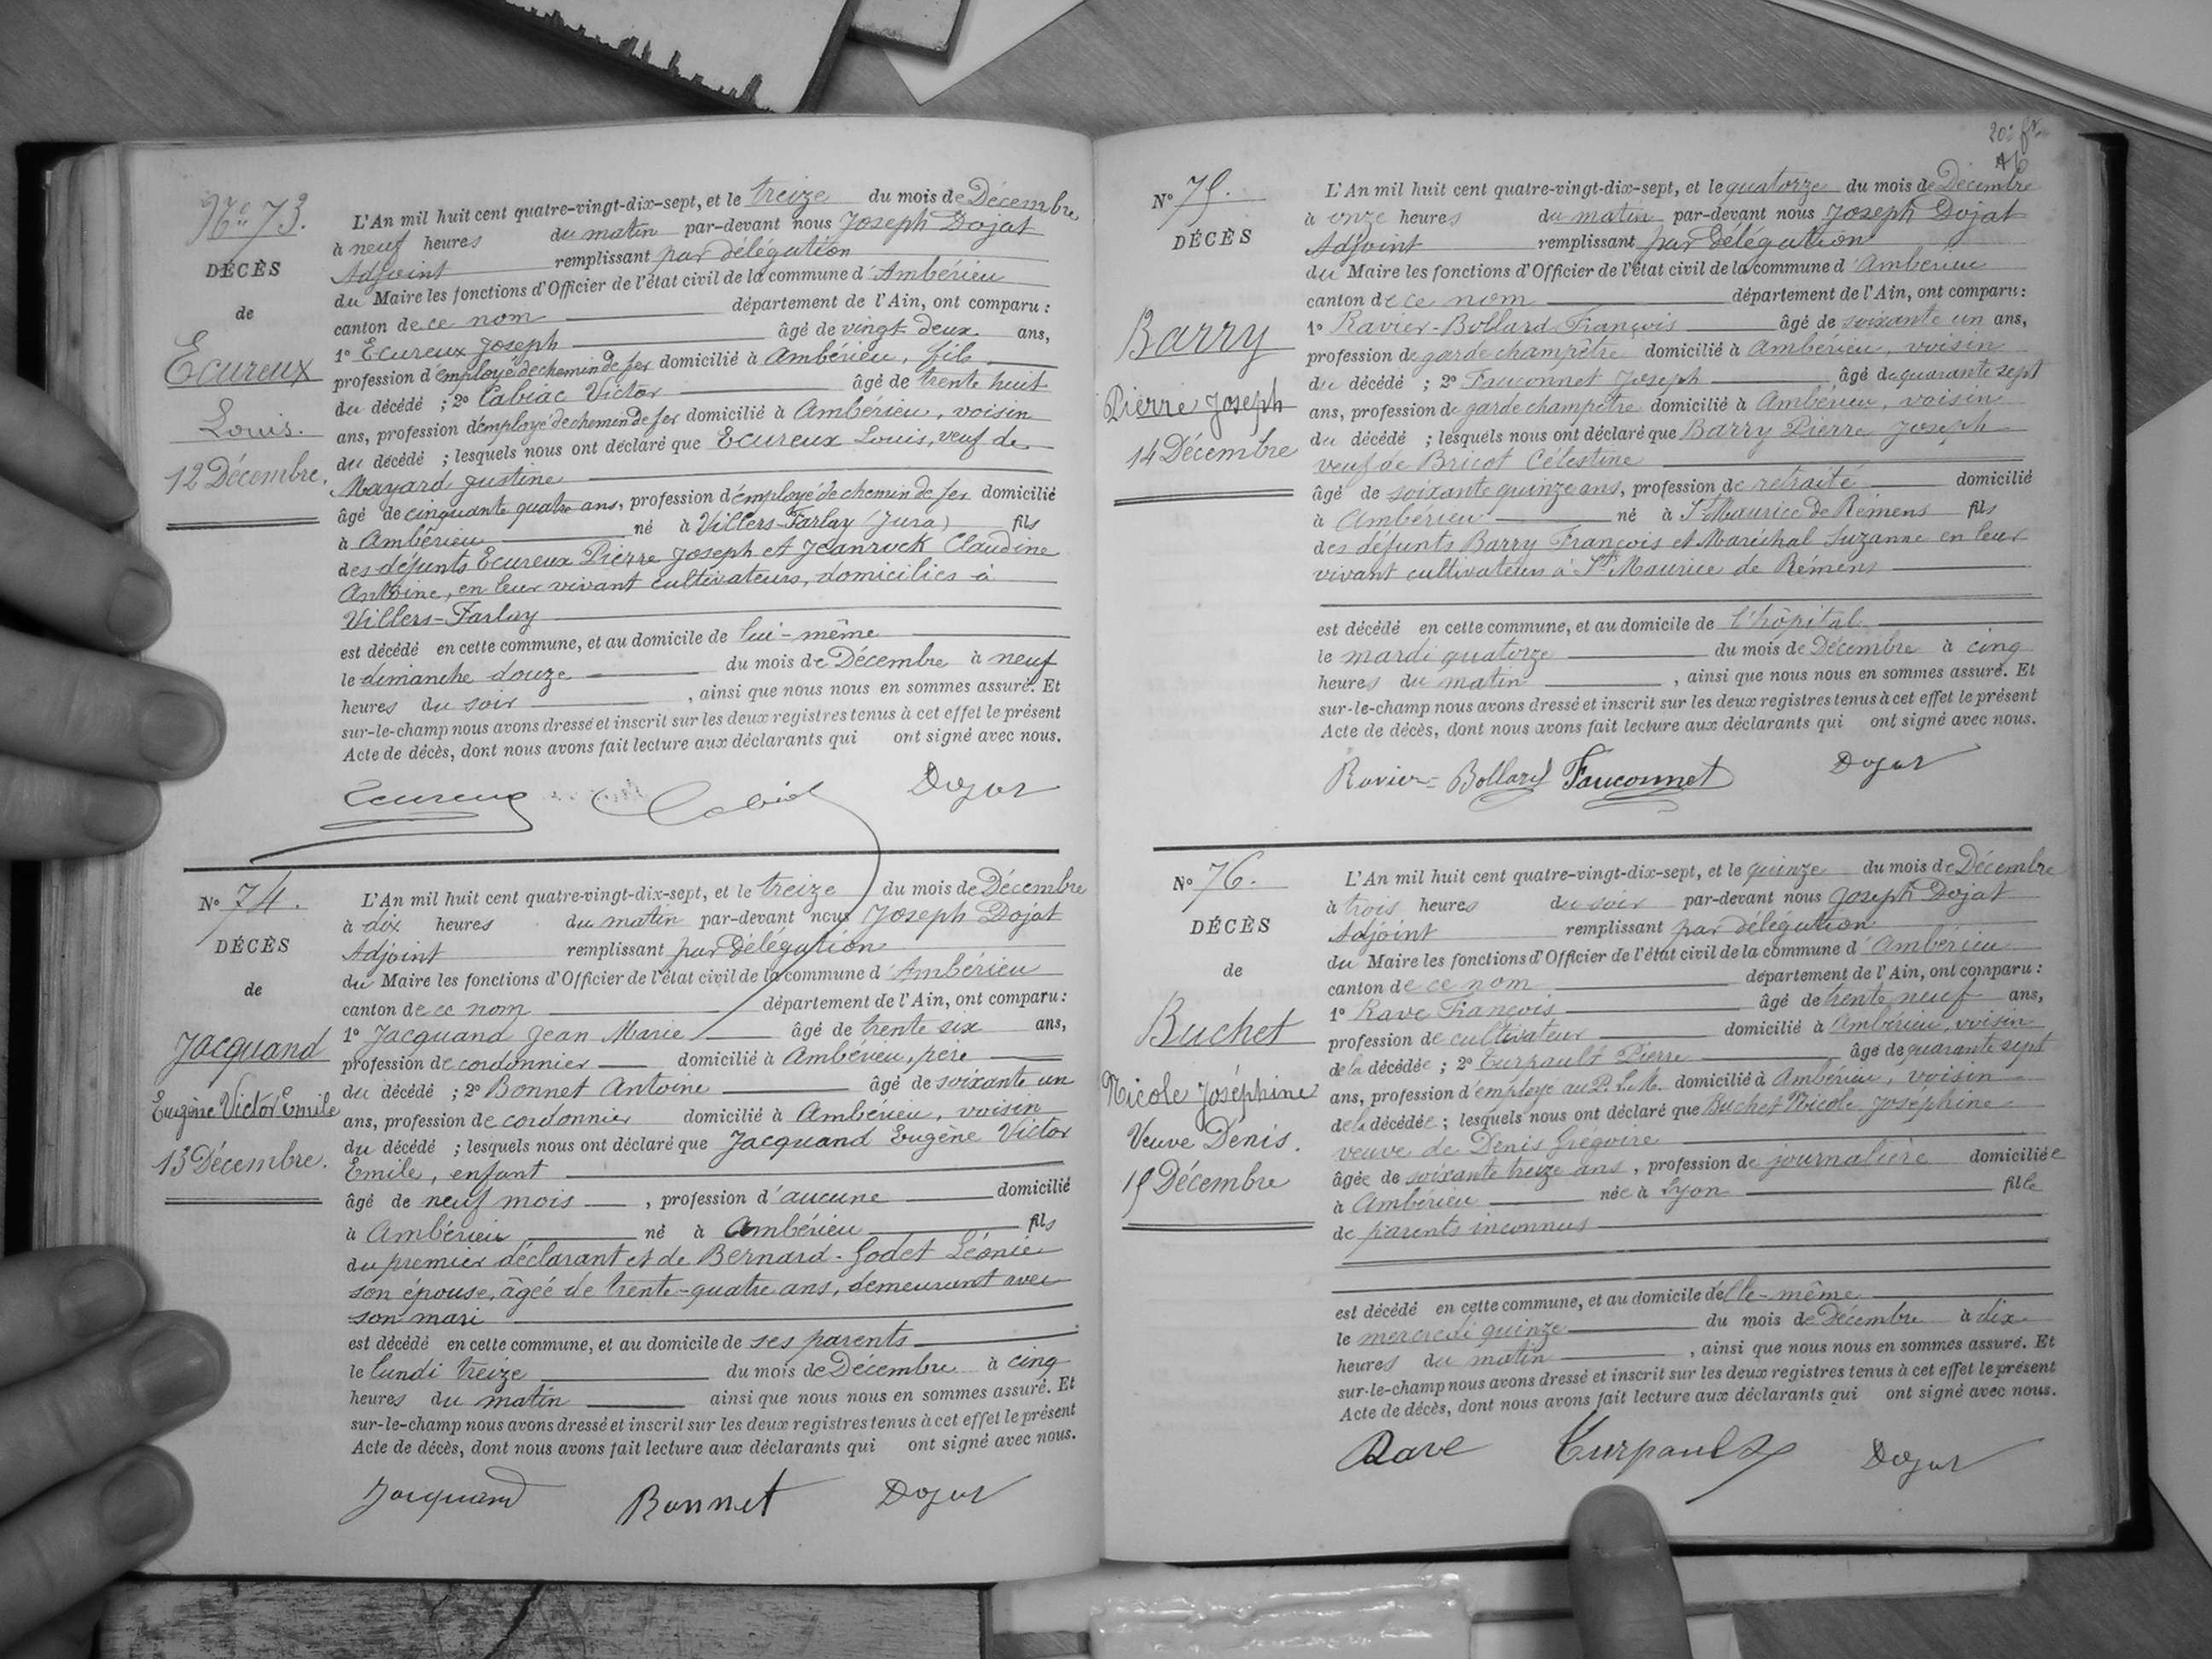 No 73.
DÉCÈS
de
Ecureux
Louis.
12 Décembre.
L'An mil huit cent quatre-vingt-dix-sept, et le treize du mois de Décembre
à neuf heures du matin par-devant nous Joseph Dojat
Adjoint remplissant par délégation
du Maire les fonctions d'Officier de l'état civil de la commune d'Ambérieu
canton de ce nom département de l'Ain, ont comparu :
1o Ecureux Joseph âgé de vingt deux ans,
profession d'employé de chemin de fer domicilié à Ambérieu, fils
du décédé ; 2o Cabiac Victor âgé de trente huit
ans, profession d'employé de chemin de fer domicilié à Ambérieu, voisin
du décédé ; lesquels nous ont déclaré que Ecureux Louis, veuf de
Mayard Justine
âgé de cinquante quatre ans, profession d'employé de chemin de fer domicilié
à Ambérieu né à Villers-Farlay (Jura) fils
des défunts Ecureux Pierre Joseph et Jeanrock Claudine
Antoine, en leur vivant cultivateurs, domiciliés à
Villers-Farlay
est décédé en cette commune, et au domicile de lui-même
le dimanche douze du mois de Décembre à neuf
heures du soir , ainsi que nous nous en sommes assuré. Et
sur-le-champ nous avons dressé et inscrit sur les deux registres tenus à cet effet le présent
Acte de décès, dont nous avons fait lecture aux déclarants qui ont signé avec nous.
Ecureux Dojat
No 74.
DÉCÈS
de
Jacquand
Eugène Victor Emile
13 Décembre.
L'An mil huit cent quatre-vingt-dix-sept, et le treize du mois de Décembre
à dix heures du matin par-devant nous Joseph Dojat
Adjoint remplissant par délégation
du Maire les fonctions d'Officier de l'état civil de la commune d'Ambérieu
canton de ce nom département de l'Ain, ont comparu :
1o Jacquand Jean Marie âgé de trente six ans,
profession de cordonnier domicilié à Ambérieu, père
du décédé ; 2o Bonnet Antoine âgé de soixante un
ans, profession de cordonnier domicilié à Ambérieu, voisin
du décédé ; lesquels nous ont déclaré que Jacquand Eugène Victor
Emile, enfant
âgé de neuf mois , profession d'aucune domicilié
à Ambérieu né à Ambérieu fils
du premier déclarant et de Bernard-Godet Léonie
son épouse, âgée de trente-quatre ans, demeurant avec
son mari
est décédé en cette commune, et au domicile de ses parents
le lundi treize du mois de Décembre à cinq
heures du matin ainsi que nous nous en sommes assuré. Et
sur-le-champ nous avons dressé et inscrit sur les deux registres tenus à cet effet le présent
Acte de décès, dont nous avons fait lecture aux déclarants qui ont signé avec nous.
Jacquand Bonnet Dojat
No 75.
DÉCÈS
Barry
Pierre Joseph
14 Décembre
L'An mil huit cent quatre-vingt-dix-sept, et le quatorze du mois de Décembre
à onze heures du matin par-devant nous Joseph Dojat
Adjoint remplissant par délégation
du Maire les fonctions d'Officier de l'état civil de la commune d'Ambérieu
canton de ce nom département de l'Ain, ont comparu :
1o Ravier-Bollard François âgé de soixante un ans,
profession de garde champêtre domicilié à Ambérieu, voisin
du décédé ; 2o Fauconnet Joseph âgé de quarante sept
ans, profession de garde champêtre domicilié à Ambérieu, voisin
du décédé ; lesquels nous ont déclaré que Barry Pierre Joseph
veuf de Bricot Célestine
âgé de soixante quinze ans, profession de retraité domicilié
à Ambérieu né à St Maurice de Rémens fils
des défunts Barry François et Maréchal Suzanne en leur
vivant cultivateurs à St Maurice de Rémens
est décédé en cette commune, et au domicile de l'hôpital
le mardi quatorze du mois de Décembre à cinq
heures du matin , ainsi que nous nous en sommes assuré. Et
sur-le-champ nous avons dressé et inscrit sur les deux registres tenus à cet effet le présent
Acte de décès, dont nous avons fait lecture aux déclarants qui ont signé avec nous.
Ravier-Bollard Fauconnet Dojat
No 76.
DÉCÈS
de
Buchet
Nicole Joséphine
Veuve Denis.
15 Décembre
L'An mil huit cent quatre-vingt-dix-sept, et le quinze du mois de Décembre
à trois heures du soir par-devant nous Joseph Dojat
Adjoint remplissant par délégation
du Maire les fonctions d'Officier de l'état civil de la commune d'Ambérieu
canton de ce nom département de l'Ain, ont comparu :
1o Rave François âgé de trente neuf ans,
profession de cultivateur domicilié à Ambérieu, voisin
de la décédée ; 2o Turpault Pierre âgé de quarante sept
ans, profession d'employé au P.L.M. domicilié à Ambérieu, voisin
de la décédée ; lesquels nous ont déclaré que Buchet Nicole Joséphine
veuve de Denis Grégoire
âgée de soixante treize ans, profession de journalière domiciliée
à Ambérieu née à Lyon fille
de parents inconnus
est décédé en cette commune, et au domicile d'elle-même
le mercredi quinze du mois de Décembre à dix
heures du matin , ainsi que nous nous en sommes assuré. Et
sur-le-champ nous avons dressé et inscrit sur les deux registres tenus à cet effet le présent
Acte de décès, dont nous avons fait lecture aux déclarants qui ont signé avec nous.
Rave Turpault Dojat